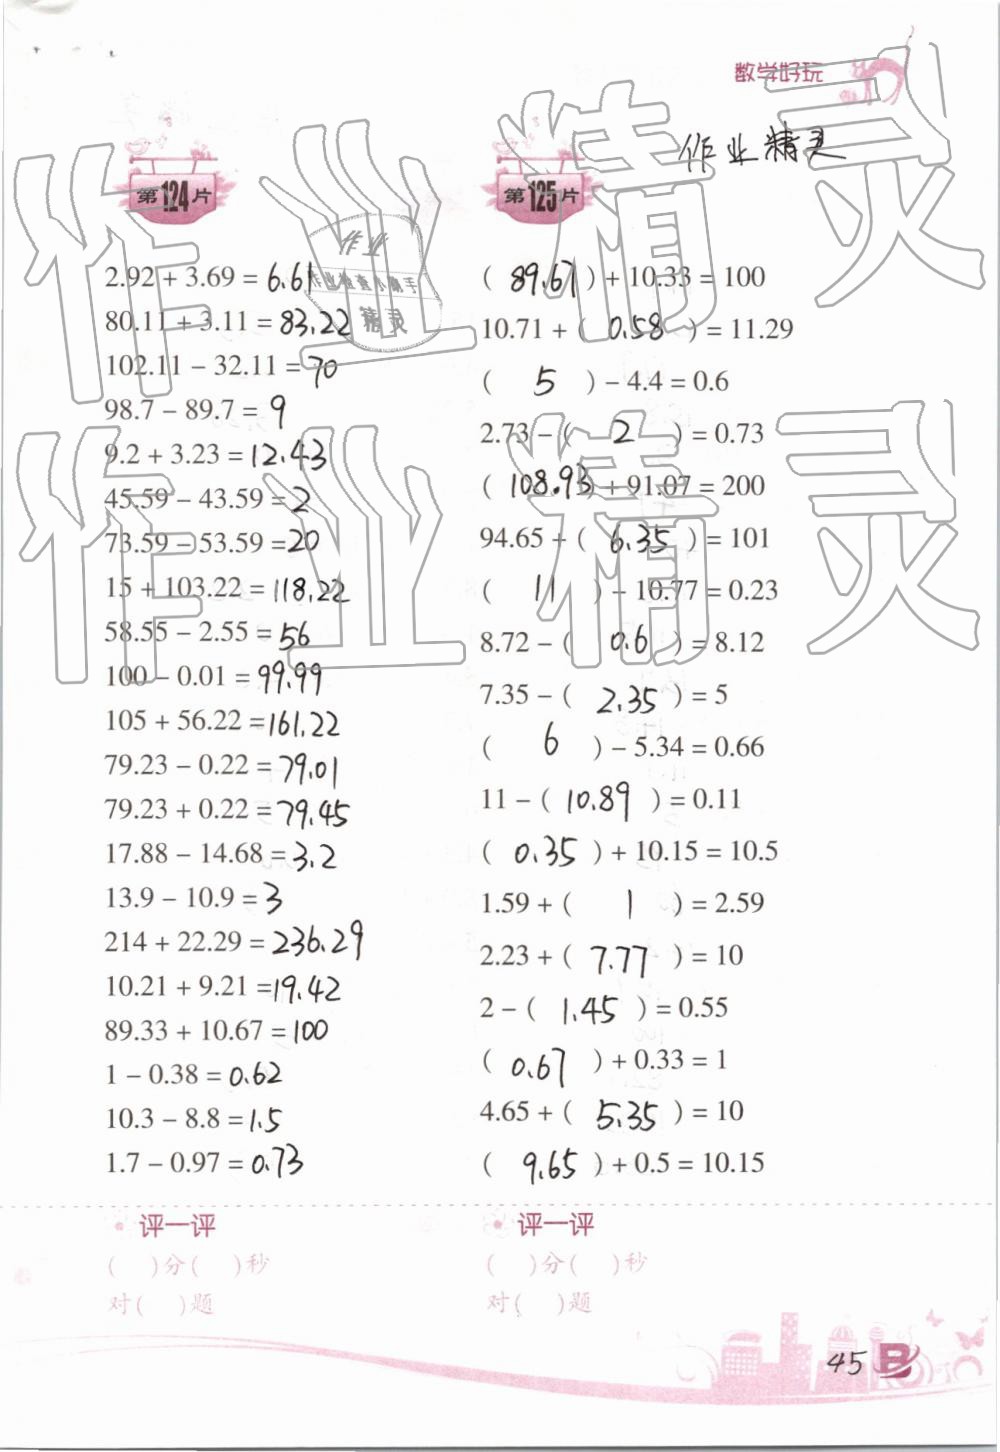 数学好玩
作业精灵
第124片
2.92 + 3.69 = 6.61
80.11 + 3.11 = 83.22
102.11 − 32.11 = 70
98.7 − 89.7 = 9
9.2 + 3.23 = 12.43
45.59 − 43.59 = 2
73.59 − 53.59 = 20
15 + 103.22 = 118.22
58.55 − 2.55 = 56
100 − 0.01 = 99.99
105 + 56.22 = 161.22
79.23 − 0.22 = 79.01
79.23 + 0.22 = 79.45
17.88 − 14.68 = 3.2
13.9 − 10.9 = 3
214 + 22.29 = 236.29
10.21 + 9.21 = 19.42
89.33 + 10.67 = 100
1 − 0.38 = 0.62
10.3 − 8.8 = 1.5
1.7 − 0.97 = 0.73
评一评
( )分( )秒
对( )题
第125片
( 89.67 ) + 10.33 = 100
10.71 + ( 0.58 ) = 11.29
( 5 ) − 4.4 = 0.6
2.73 − ( 2 ) = 0.73
( 108.93 ) + 91.07 = 200
94.65 + ( 6.35 ) = 101
( 11 ) − 10.77 = 0.23
8.72 − ( 0.6 ) = 8.12
7.35 − ( 2.35 ) = 5
( 6 ) − 5.34 = 0.66
11 − ( 10.89 ) = 0.11
( 0.35 ) + 10.15 = 10.5
1.59 + ( 1 ) = 2.59
2.23 + ( 7.77 ) = 10
2 − ( 1.45 ) = 0.55
( 0.67 ) + 0.33 = 1
4.65 + ( 5.35 ) = 10
( 9.65 ) + 0.5 = 10.15
评一评
( )分( )秒
对( )题
作业精灵
作业精灵
作业
作业检查小助手
精灵
45 B